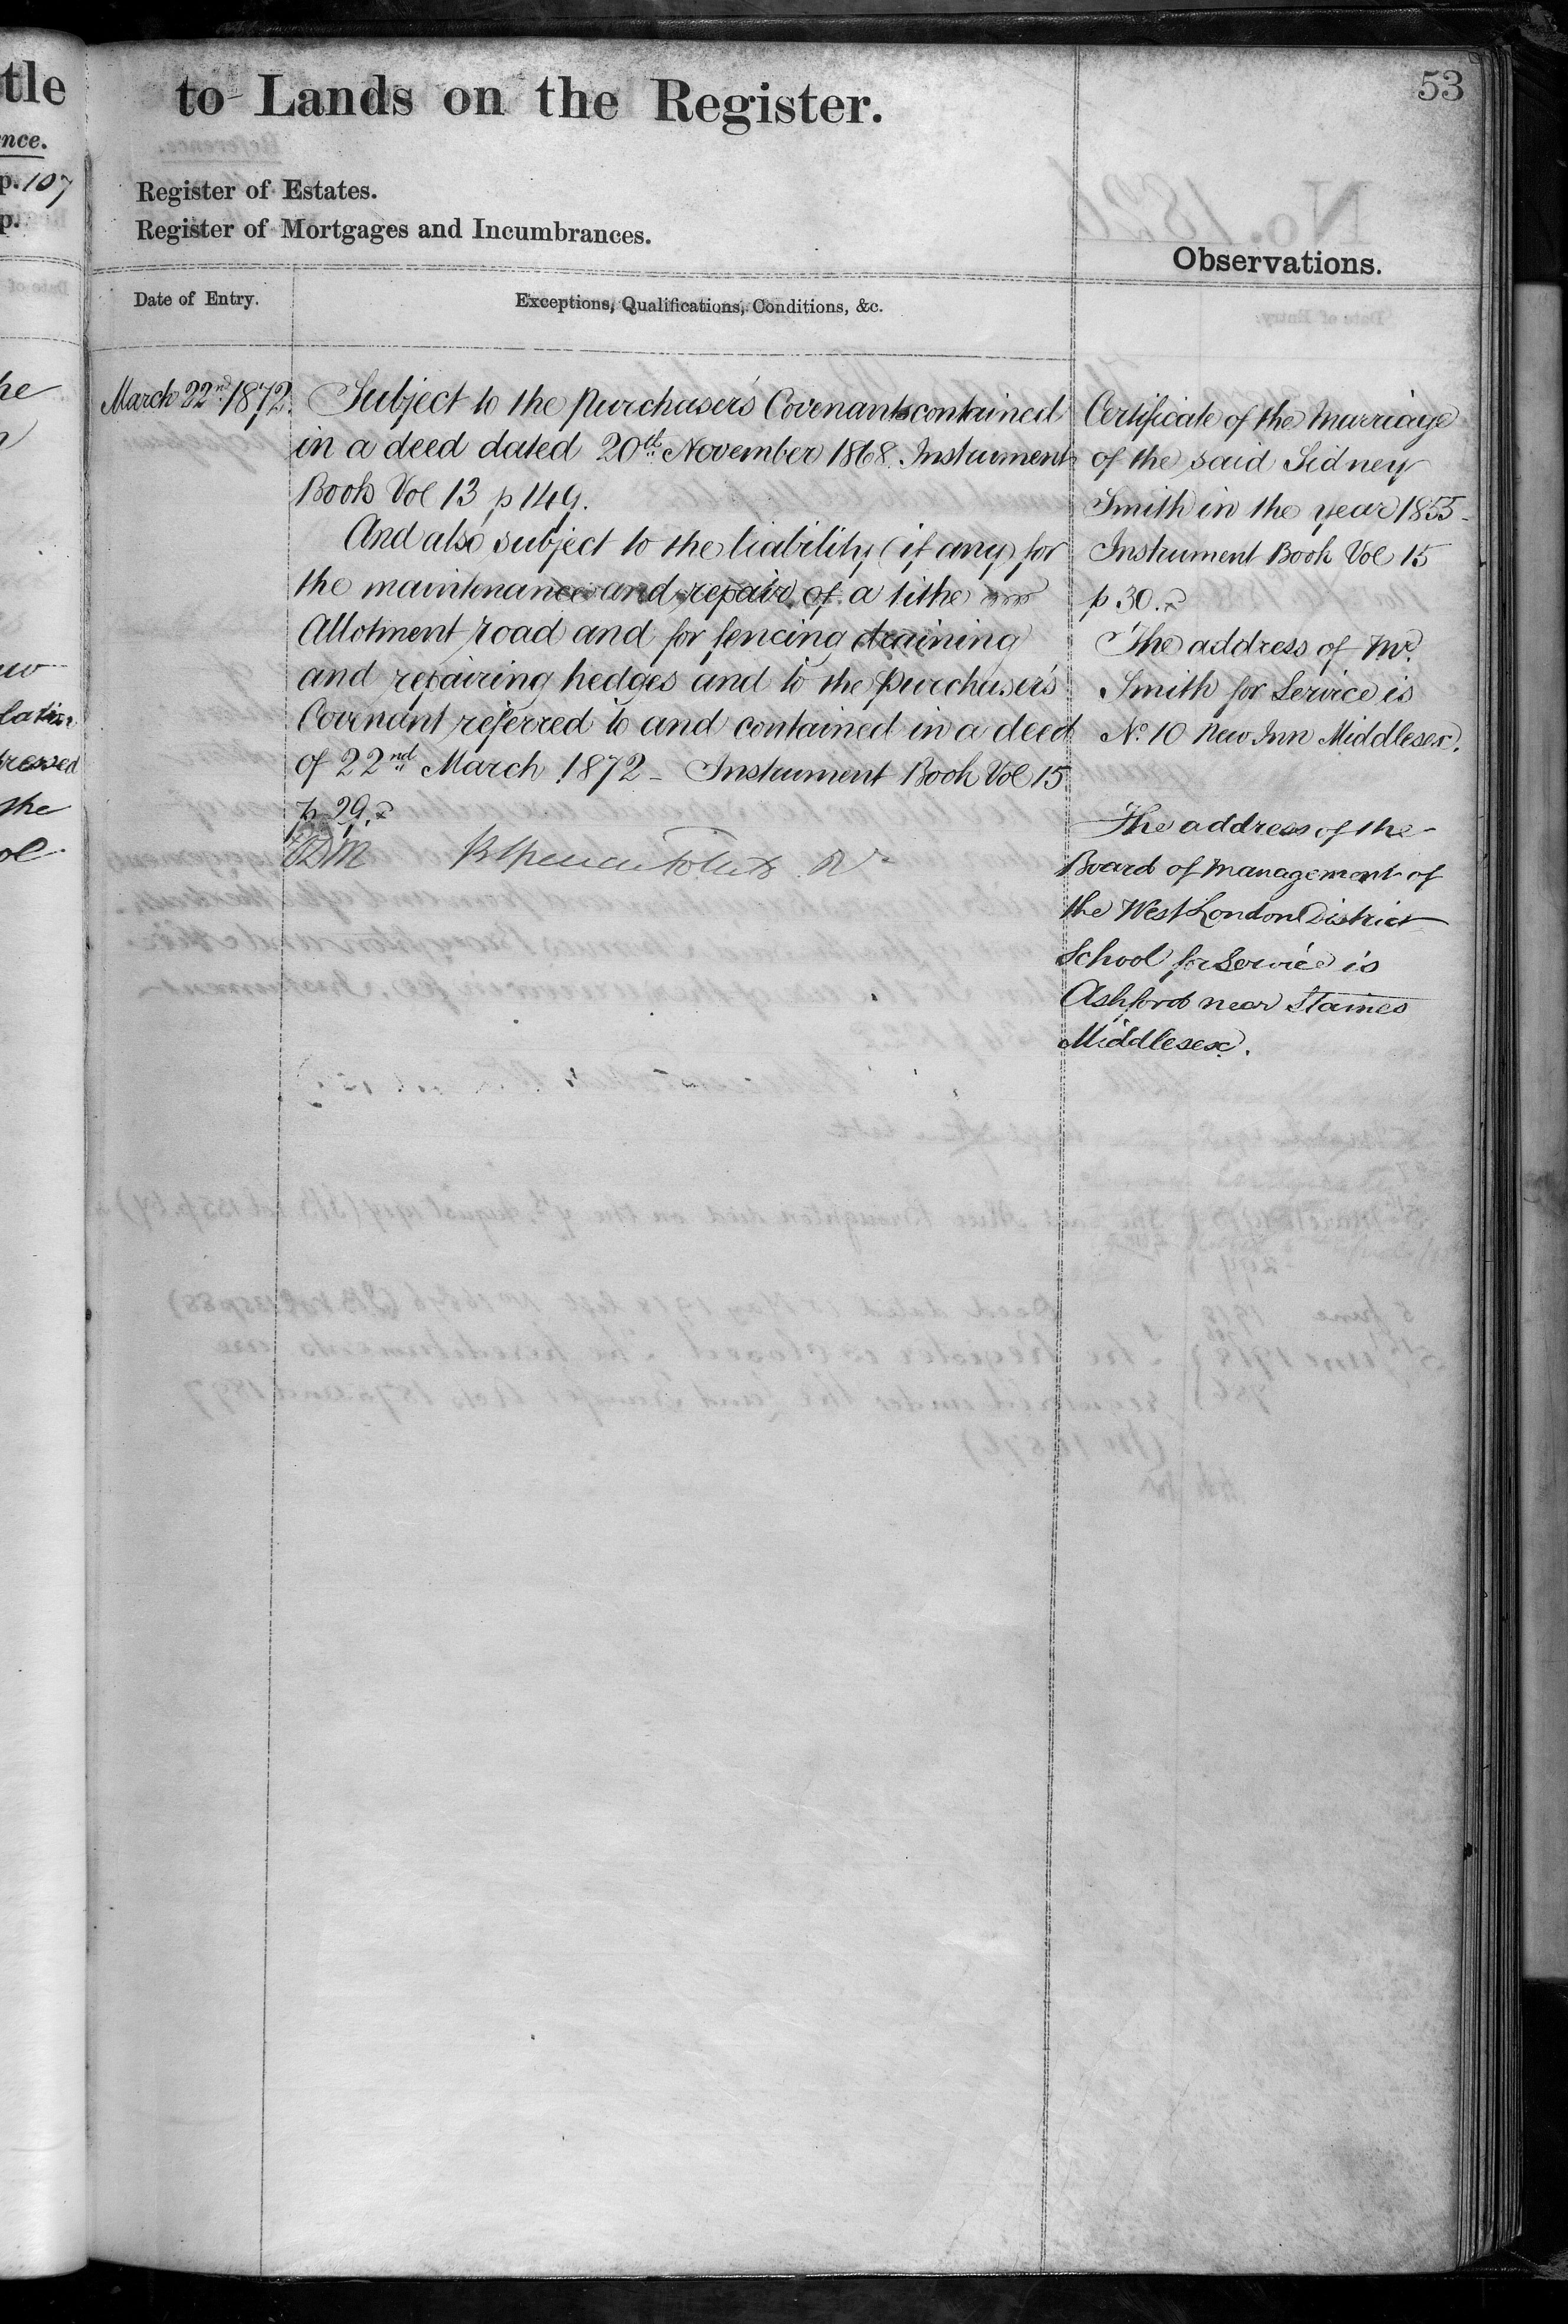 53
to Lands on the Register.
Register of Estates.
Register of Mortgages and Incumbrances.
Observations.
Date of Entry.
Exceptions, Qualifications, Conditions, &c.
March 22nd 1872.
Subject to the purchaser's Covenants contained
in a deed dated 20th November 1868. Instrument
Book Vol 13 p 149.
And also subject to the liability (if any) for
the maintenance and repair of a tithe
Allotment road and for fencing draining
and repairing hedges and to the purchaser's
Covenant referred to and contained in a deed
of 22nd March 1872 - Instrument Book Vol 15
p 29.
Certificate of the Marriage
of the said Sidney
Smith in the year 1855-
Instrument Book Vol 15
p 30.
The address of Mr.
Smith for Service is
No. 10 New Inn Middlesex.
The address of the
Board of Management of
the West London District
School for Service is
Ashford near Staines
Middlesex.
tle
nce.
p. 107
p.
he
the